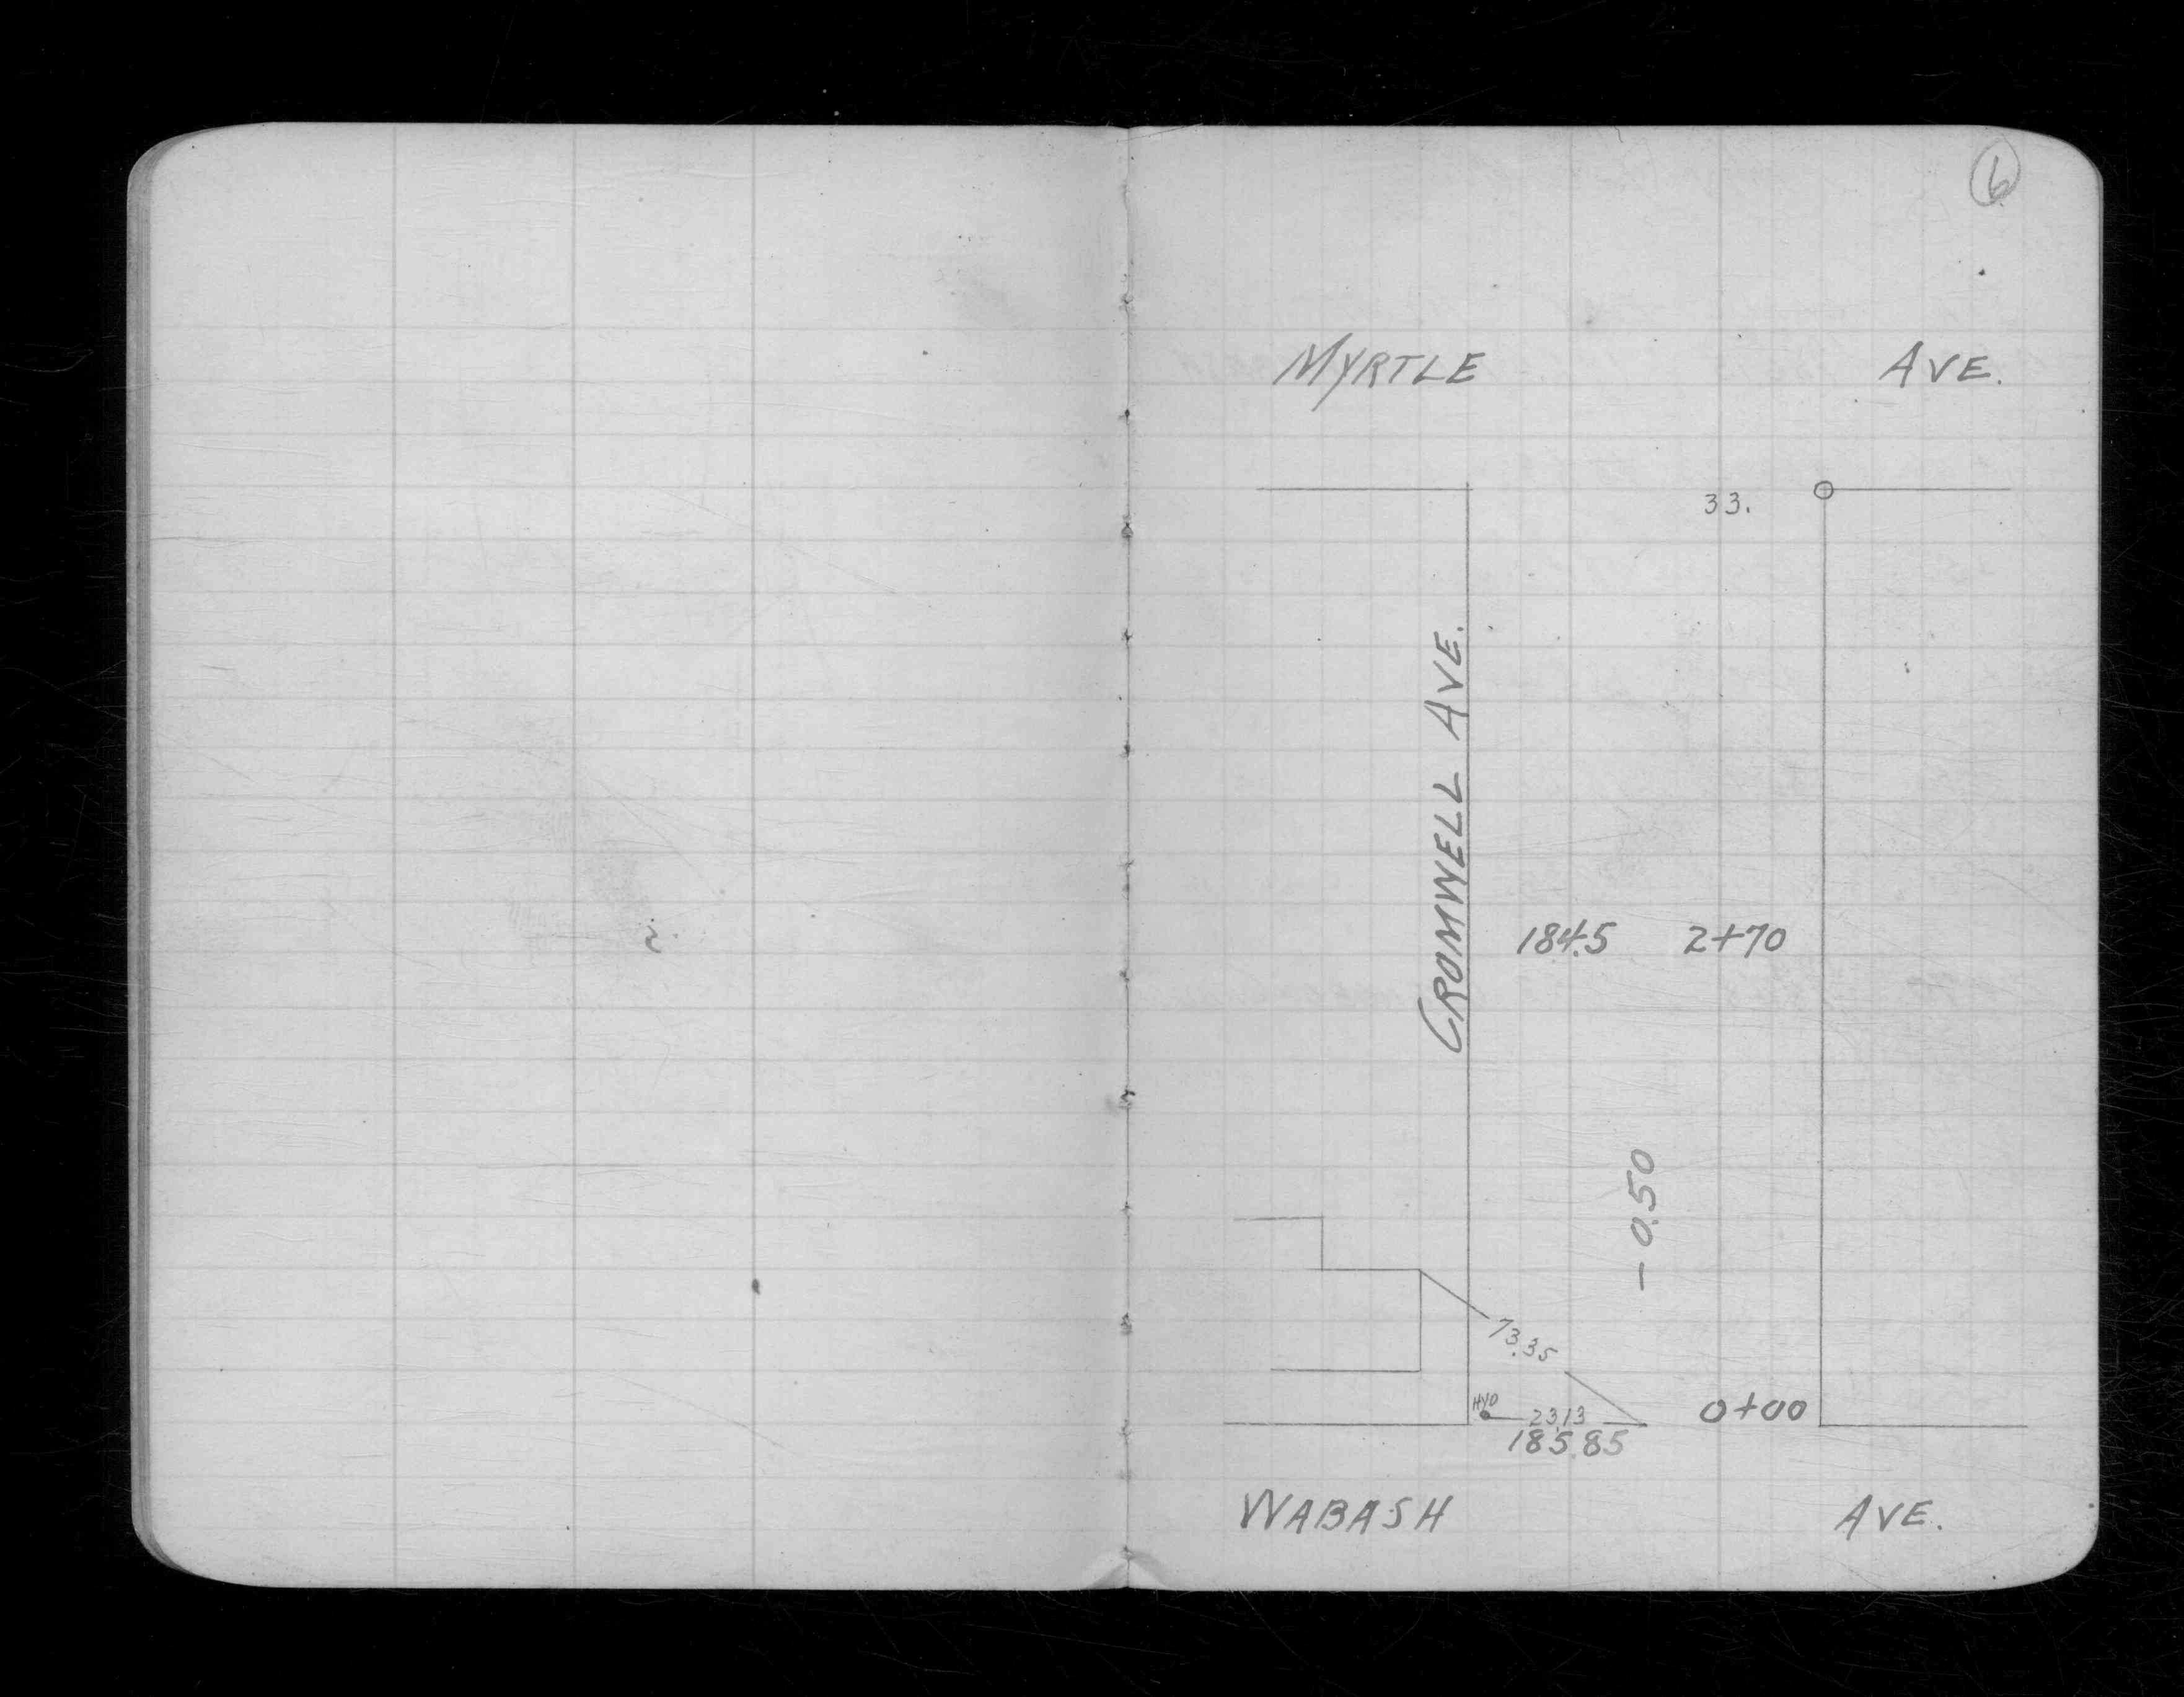 6
MYRTLE AVE.
33.
CROMWELL AVE.
184.5 2+70
- 0.50
73.35
HYD 23.13 0+00
185.85
WABASH AVE.